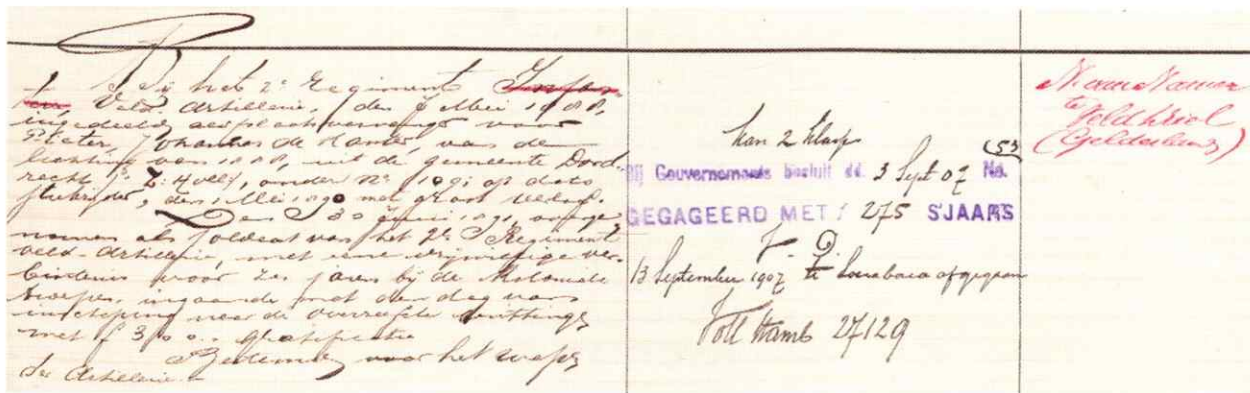 Bij het 2e Regiment
Veld-Artillerie, den 7 Mei 1888,
ingedeeld als plaatsvervanger voor
Pieter, Johannes de Kanter, van de
lichting van 1888, uit de gemeente Dord
recht Z: Holld, onder No 109; op dato
den 1 Mei 1890 met groot verlof.
Den 30 Juni 1891, overge
nomen als soldaat van het 2e Regiment
veld-Artillerie, met eene vrijwillige ver-
bindenis voor zes jaren bij de Koloniale
troepen, ingaande met den dag van
inscheping naar de overzeesche bezittingen
met f 300.- gratificatie
Bestemd voor het wapen
der Artillerie.-
kan 2 klasse
(53)
Bij Gouvernements besluit dd. 3 Sept 07 No.
GEGAGEERD MET f 275 S'JAARS
13 September 1907 te Soerabaca afgegaan
Stamb 27129
te
Veldhriel
(Gelderland)